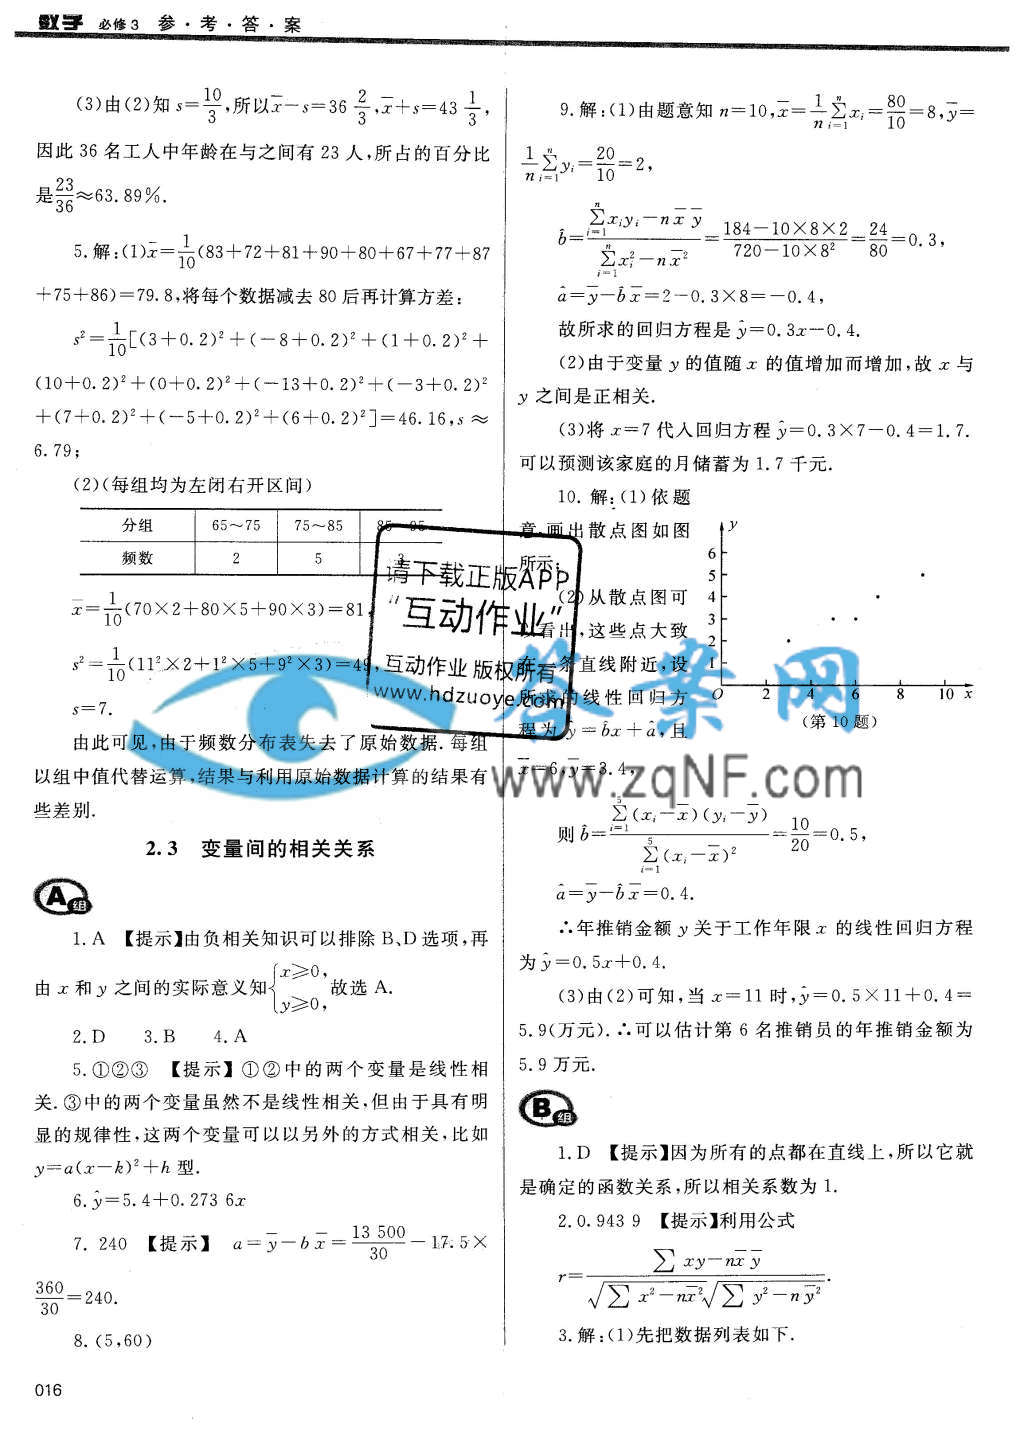 数学 必修3 参·考·答·案
(3)由(2)知 s=10/3,所以x̄-s=36 2/3,x̄+s=43 1/3,
因此 36 名工人中年龄在与之间有 23 人,所占的百分比
是23/36≈63.89%.
5.解:(1)x̄=1/10(83+72+81+90+80+67+77+87
+75+86)=79.8,将每个数据减去 80 后再计算方差:
s²=1/10[(3+0.2)²+(-8+0.2)²+(1+0.2)²+
(10+0.2)²+(0+0.2)²+(-13+0.2)²+(-3+0.2)²
+(7+0.2)²+(-5+0.2)²+(6+0.2)²]=46.16,s≈
6.79;
(2)(每组均为左闭右开区间)
分组 65~75 75~85 85~95
频数 2 5 3
x̄=1/10(70×2+80×5+90×3)=81,
s²=1/10(11²×2+1²×5+9²×3)=49,
s=7.
由此可见,由于频数分布表失去了原始数据.每组
以组中值代替运算,结果与利用原始数据计算的结果有
些差别.
2.3 变量间的相关关系
A组
1.A 【提示】由负相关知识可以排除 B、D 选项,再
由 x 和 y 之间的实际意义知{x≥0, y≥0,故选 A.
2.D 3.B 4.A
5.①②③ 【提示】①②中的两个变量是线性相
关.③中的两个变量虽然不是线性相关,但由于具有明
显的规律性,这两个变量可以以另外的方式相关,比如
y=a(x-k)²+h 型.
6.ŷ=5.4+0.273 6x
7. 240 【提示】 a=ȳ-b x̄=13 500/30-17.5×
360/30=240.
8.(5,60)
016
9.解:(1)由题意知 n=10,x̄=1/n ∑(i=1→n) xᵢ=80/10=8,ȳ=
1/n ∑(i=1→n) yᵢ=20/10=2,
b̂=(∑(i=1→n) xᵢyᵢ-n x̄ ȳ)/(∑(i=1→n) xᵢ²-n x̄²)=(184-10×8×2)/(720-10×8²)=24/80=0.3,
â=ȳ-b̂ x̄=2-0.3×8=-0.4,
故所求的回归方程是 ŷ=0.3x-0.4.
(2)由于变量 y 的值随 x 的值增加而增加,故 x 与
y 之间是正相关.
(3)将 x=7 代入回归方程 ŷ=0.3×7-0.4=1.7.
可以预测该家庭的月储蓄为 1.7 千元.
10. 解:(1)依题
意,画出散点图如图
所示:
(2)从散点图可
以看出,这些点大致
在一条直线附近,设
所求的线性回归方
程为 ŷ=b̂x+â,且
x̄=6,ȳ=3.4,
y
6
5
4
3
2
1
O 2 4 6 8 10 x
(第 10 题)
则 b̂=∑(i=1→5)(xᵢ-x̄)(yᵢ-ȳ)/∑(i=1→5)(xᵢ-x̄)²=10/20=0.5,
â=ȳ-b̂ x̄=0.4.
∴年推销金额 y 关于工作年限 x 的线性回归方程
为 ŷ=0.5x+0.4.
(3)由(2)可知,当 x=11 时,ŷ=0.5×11+0.4=
5.9(万元).∴可以估计第 6 名推销员的年推销金额为
5.9 万元.
B组
1.D 【提示】因为所有的点都在直线上,所以它就
是确定的函数关系,所以相关系数为 1.
2.0.943 9 【提示】利用公式
r=(∑xy-nx̄ ȳ)/(√(∑x²-nx̄²)√(∑y²-nȳ²)).
3.解:(1)先把数据列表如下.
请下载正版APP
“互动作业”
互动作业 版权所有
www.hdzuoye.com
答案网
www.zqNF.com